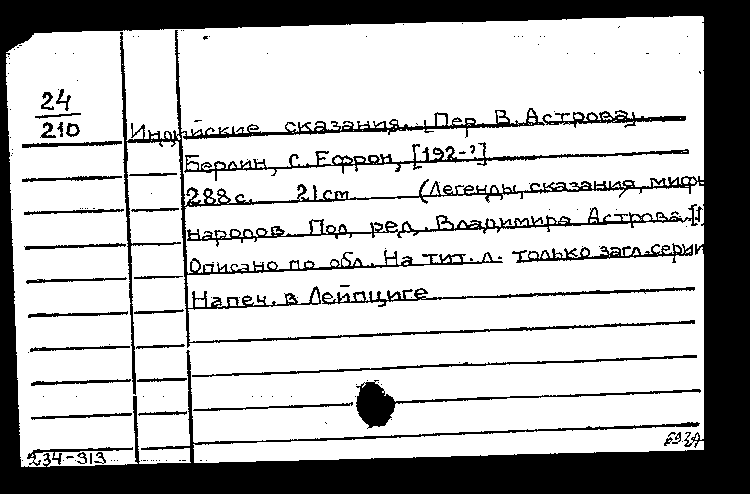 24
210
Индийские сказания. [Пер. В. Астрова]
Берлин, С. Ефрон, [192-?]
288 с. 21 cm (Легенды, сказания, мифы
народов. Под ред. Владимира Астрова. [1]
Описано по обл. На тит. л. только загл. серии
Напеч. в Лейпциге
234-313